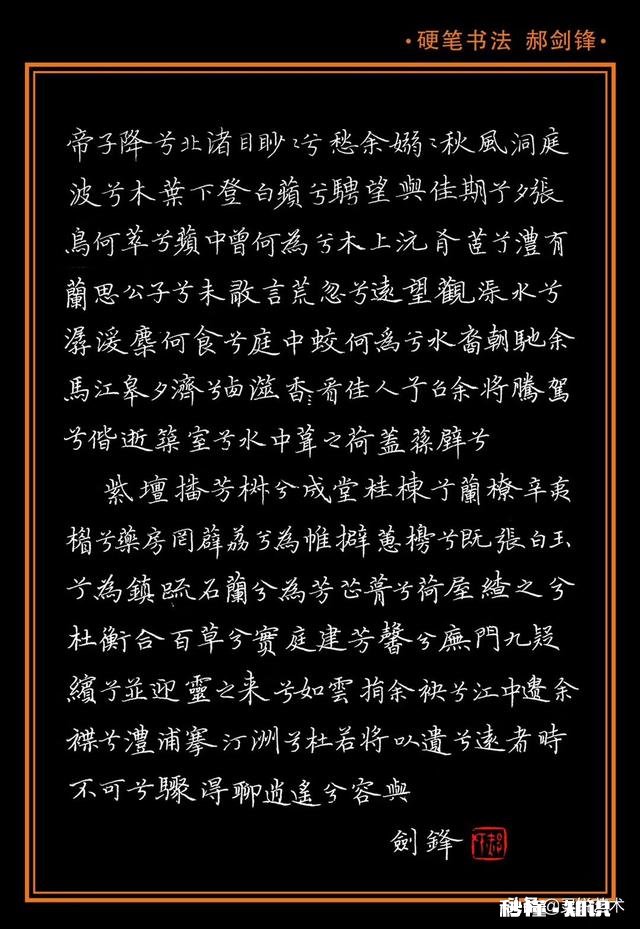 ·硬笔书法 郝剑锋·
帝子降兮北渚目眇〻兮愁余嫋〻秋風洞庭
波兮木葉下登白蘋兮騁望與佳期兮夕張
鳥何萃兮蘋中罾何為兮木上沅有茝兮澧有
蘭思公子兮未敢言荒忽兮遠望觀流水兮
潺湲麋何食兮庭中蛟何為兮水裔朝馳余
馬江皋夕濟兮 澨 佳人予召余將騰駕
兮偕逝築室兮水中葺之荷蓋蓀壁兮
紫壇播芳椒兮成堂桂棟兮蘭橑辛夷
楣兮藥房罔薜荔兮為帷擗蕙櫋兮既張白玉
兮為鎮疏石蘭兮為芳芷葺兮荷屋繚之兮
杜衡合百草兮實庭建芳馨兮廡門九疑
繽兮並迎靈之来兮如雲捐余袂兮江中遺余
褋兮澧浦搴汀洲兮杜若將以遺兮遠者時
不可兮驟得聊逍遙兮容與
劍鋒
秒懂·知识